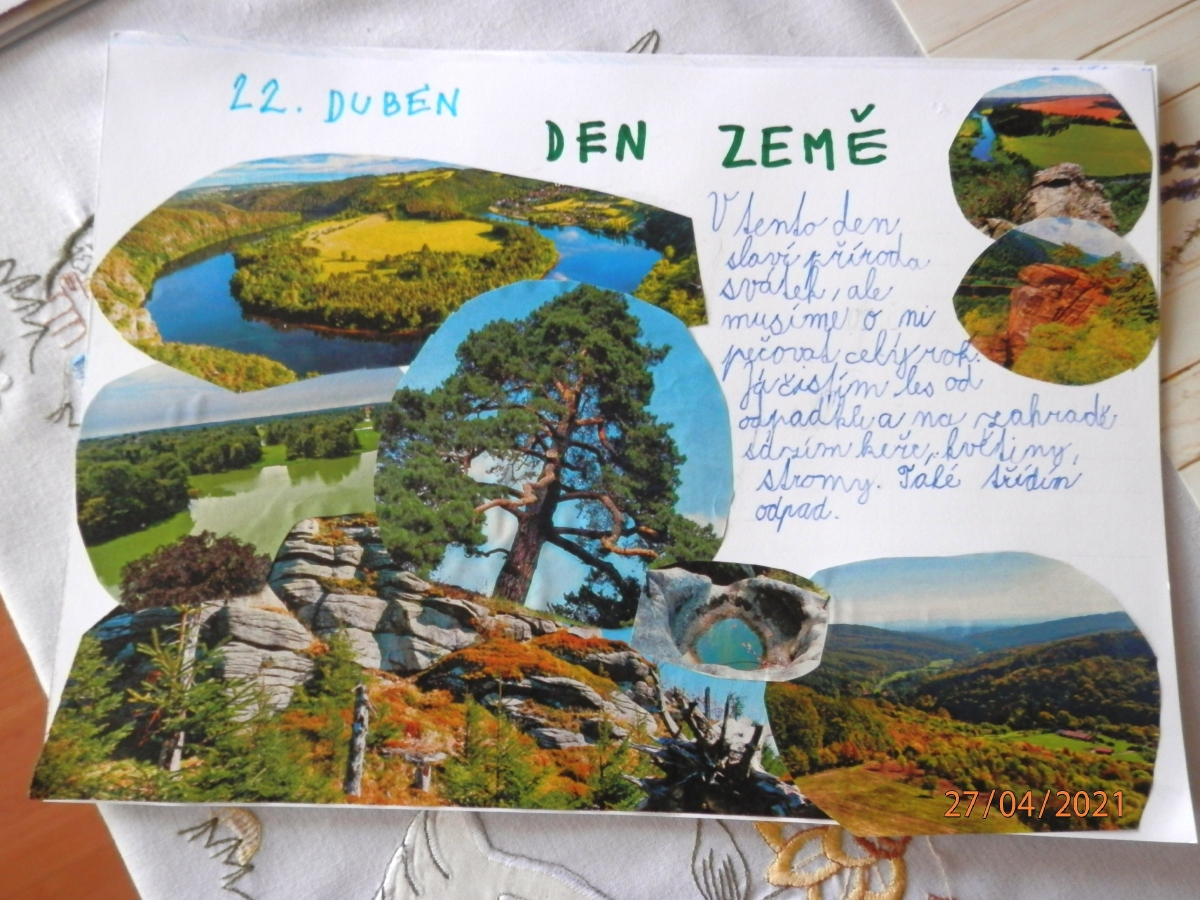 22. DUBEN
DEN ZEMĚ
V tento den
slaví příroda
svátek, ale
musíme o ni
pečovat celý rok.
Já čistím les od
odpadků a na zahradě
sázím keře, květiny,
stromy. Také třídím
odpad.
27/04/2021